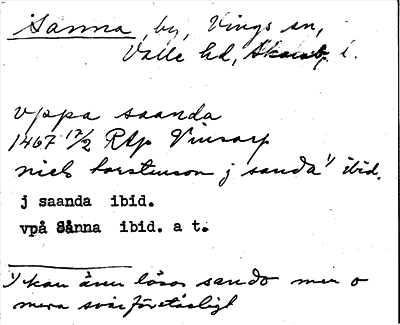 Sanna, by, Vings sn,
Valle hd, Skarab. l.
vppa saanda
1467 17/2 Rap Vinsarp
niels torstenson j sanda 1) ibid.
j saanda ibid.
vpå Sånna ibid. a t.
1) kan även läsas sando men o
mera svårförståeligt